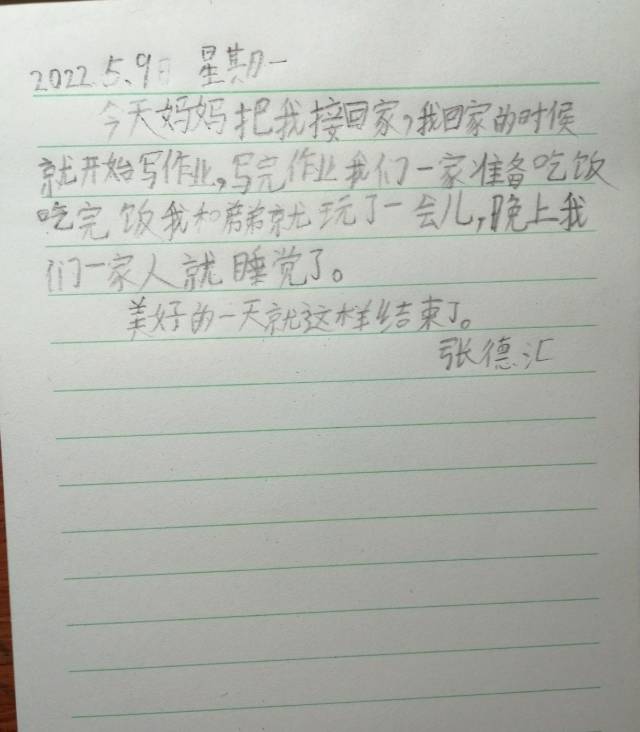 2022.5.9日 星期一
今天妈妈把我接回家,我回家的时候
就开始写作业,写完作业我们一家准备吃饭
吃完饭我和弟弟就玩了一会儿,晚上我
们一家人就睡觉了。
美好的一天就这样结束了。
张德汇